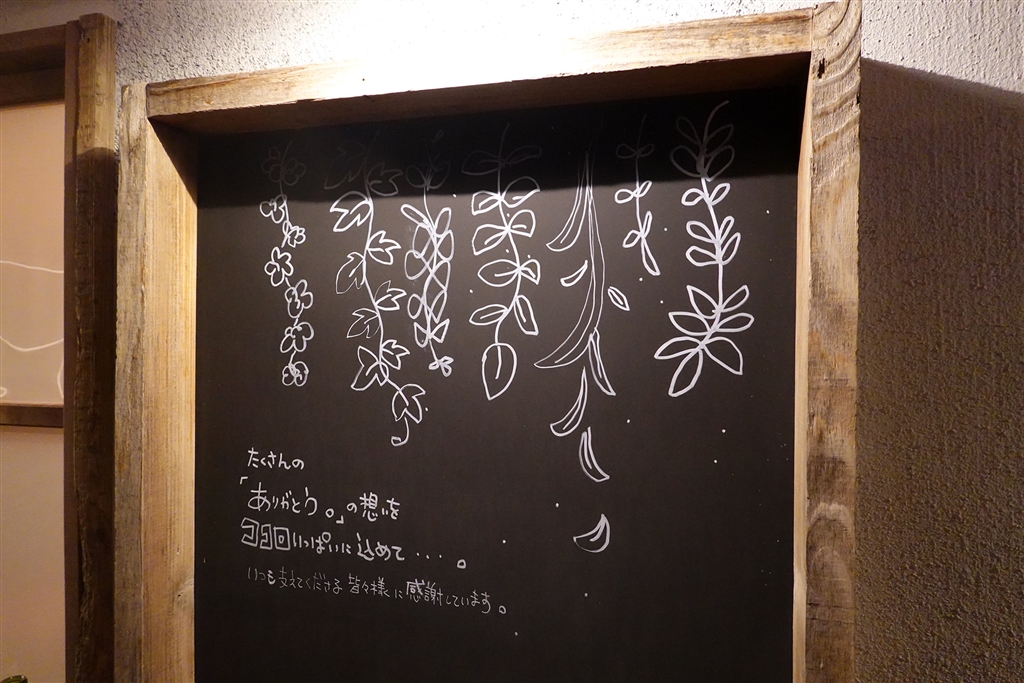 たくさんの
「ありがとう。」の想いを
ココロいっぱいに込めて・・・。
いつも支えてくださる皆々様に感謝しています。